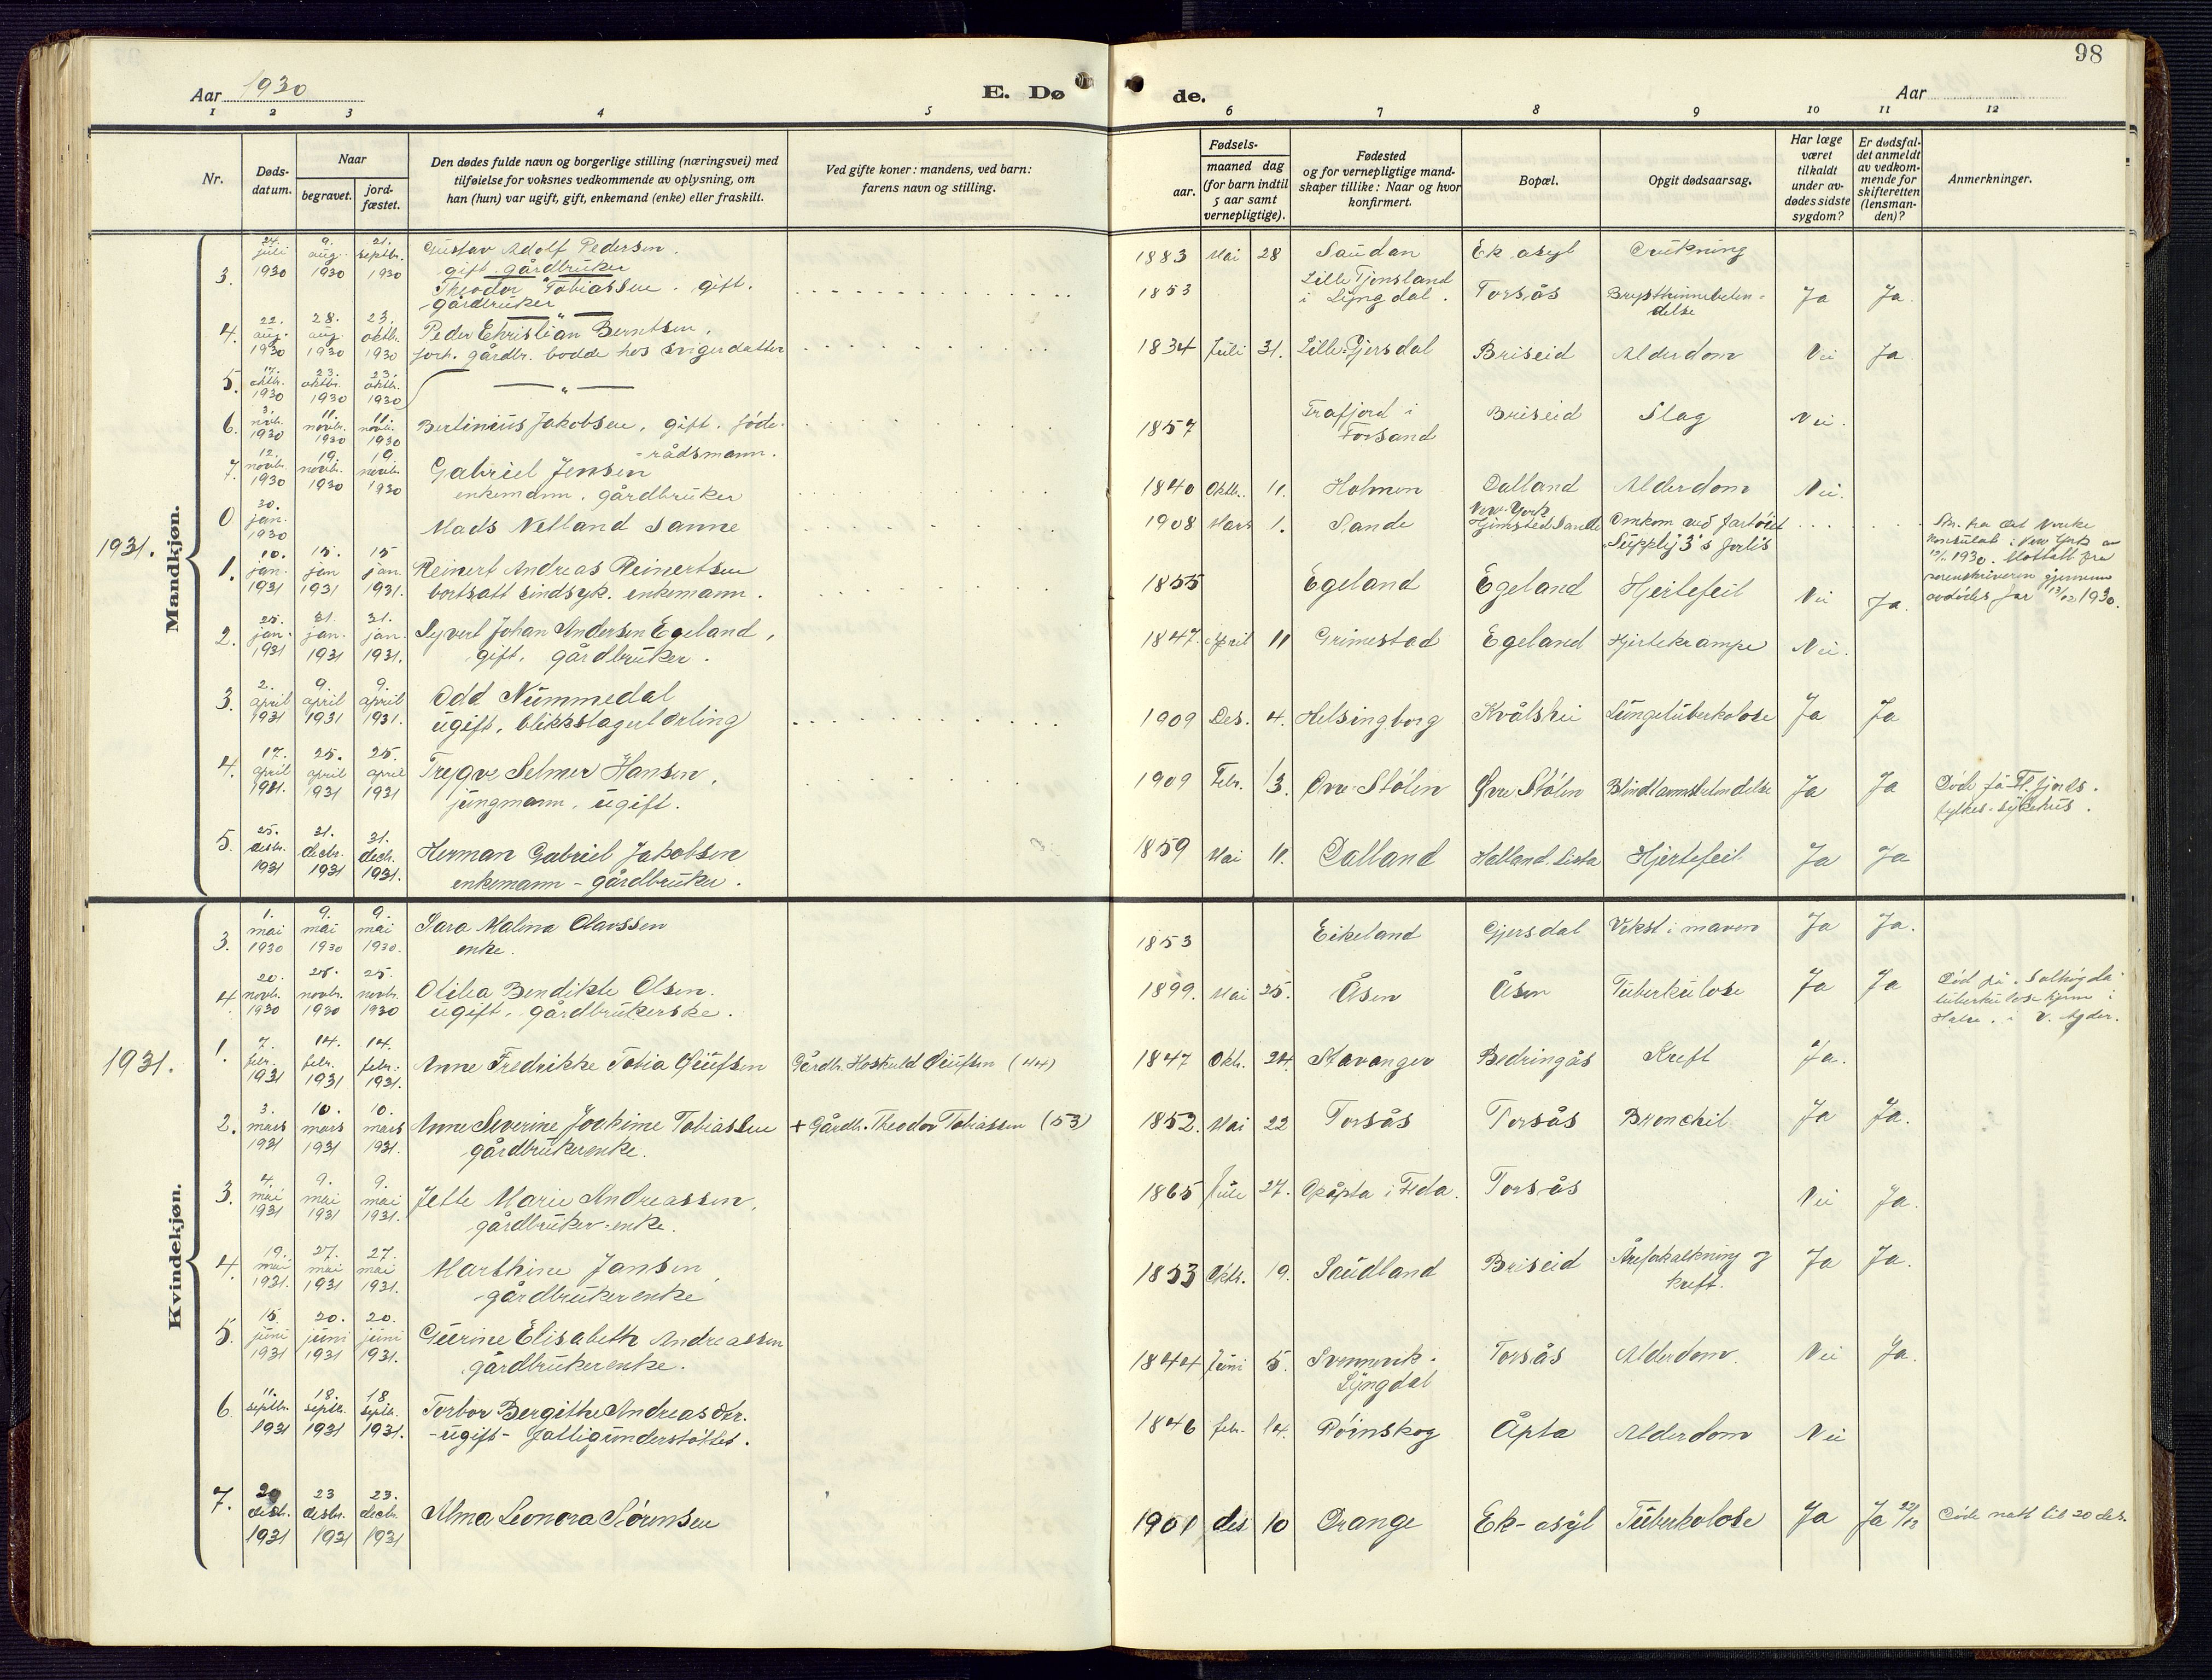 98
Aar 1930
E. Dø
de.
Aar
1 2 3 4 5 6 7 8 9 10 11 12
Nr.
Døds-
datum.
Naar
begravet.
jord-
fæstet.
Den dødes fulde navn og borgerlige stilling (næringsvei) med
tilføielse for voksnes vedkommende av oplysning, om
han (hun) var ugift, gift, enkemand (enke) eller fraskilt.
Ved gifte koner: mandens, ved barn:
farens navn og stilling.
Fødsels-
aar.
maaned dag
(for barn indtil
5 aar samt
vernepligtige).
Fødested
og for vernepligtige mand-
skaper tillike: Naar og hvor
konfirmert.
Bopæl.
Opgit dødsaarsag.
Har læge
været
tilkaldt
under av-
dødes sidste
sygdom?
Er dødsfal-
det anmeldt
av vedkom-
mende for
skifteretten
(lensman-
den)?
Anmerkninger.
Mandkjøn.
3. 24. juli 1930 9. aug. 1930 21. septbr. 1930 Gustav Adolf Pedersen.
gift gårdbruker
1883 Mai 28 Saudan Ek asyl Drukning
Theodor Tobiassen. gift.
gårdbruker
1853 Lille Tjonsland
i Lyngdal. Torsås Brysthinnebeten-
delse Ja Ja.
4. 22. aug. 1930 28. aug. 1930 23. oktbr. 1930 Peder Christian Berntsen.
forh. gårdbr. bodde hos svigerdatter
1834 Juli 31. Lille-Gjersdal Briseid Alderdom Nei Ja.
5. 17. oktbr. 1930 23. oktbr. 1930 23. oktbr. 1930 — " —
6. 3. novb. 1930 11. novbr. 1930 11. novbr. 1930 Bertinius Jakobsen, gift. føde-
rådsmann.
1857 Frafjord i
Forsand Briseid Slag Nei.
7. 12. novbr. 1930 19. novbr. 1930 19. novbr. 1930 Gabriel Jensen
enkemann. gårdbruker
1840 Oktb. 11. Holmen Dalland Alderdom Nei.
0 30. jan. 1930 Mads Netland Sanne
1908 Mars 1. Sande New-York
Hjemsted: Sande Omkom ved fartøiet
"Supply 3's forlis
Skr. fra det norske
konsulat i New York av
1930. Mottatt fra
sorenskriveren gjennem
avdødes far 1930.
1931. 1. 10. jan. 1931 15. jan 1931 15 jan. 1931. Reinert Andreas Reinertsen
bortsatt sindsyk. enkemann.
1855 Egeland Egeland Hjertefeil Nei Ja.
2. 25. jan. 1931 31. jan. 1931 31. jan. 1931. Syvert Johan Andersen Egeland,
gift, gårdbruker.
1847. April 11 Grimestad Egeland Hjertekrampe Nei.
3. 2. april 1931 9. april 1931 9. april 1931. Odd Nummedal
ugift, blikkslagerlærling
1909 Des. 4. Helsingborg Kvålshei Lungetuberkolose Ja Ja
4. 17. april 1931. 25. april 1931 25. april 1931 Trygve Selmer Hansen,
jungmann, ugift.
1909 Febr. 13. Øvre Stølen Øvre Stølen Blindtarmsbetendelse Ja Ja Døde på Fl.fjords.
fylkes-sykehus.
5. 25. desbr. 1931 31. decbr. 1931 31. decbr. 1931. Herman Gabriel Jakobsen
enkemann - gårdbruker.
1859 Mai 11. Dalland Halland. Lista Hjertefeil Ja Ja
Kvindekjøn.
3. 1. mai 1930 9. mai 1930 9. mai 1930. Sara Malena Olavssen
enke.
1853 Eikeland Gjersdal Vekst i maven Ja Ja.
4. 20. novbr. 1930 25. novbr. 1930 25. novbr. 1930 Otilia Bendikte Olsen.
ugift, gårdbrukerske.
1899. Mai 25. Åsen Åsen Tuberkulose Ja Ja Død på Solhøgda
tuberkulosehjem i
Halse, i V. Agder.
1931. 1. 7. febr. 1931 14. febr. 1931 14. febr. 1931. Anne Fredrikke Tobia Giufsen Gårdbr. Hoskuld Giufsen (44)
1847 Oktb. 24. Stavanger Bedringås Kreft Ja.
2. 3. mars 1931 10. mars 1931 10. mars 1931. Anne Severine Joakime Tobiassen + Gårdb. Theodor Tobiassen (53)
gårdbrukerenke.
1852. Mai 22 Torsås Torsås Bronchit Ja Ja.
3. 4. mai 1931 9. mai 1931 9. mai 1931. Jette Marie Andreassen,
gårdbruker-enke.
1865 Juli 27. Opåpta i Feda. Torsås Nei Ja.
4. 19. mai 1931. 27. mai 1931. 27. mai 1931. Marthine Jansen,
gårdbrukerenke
1853 Oktb. 19. Saudland Briseid Åreforkalkning og
kreft. Ja Ja.
5. 15. juni 1931 20. juni 1931 20. juni 1931. Gurine Elisabeth Andreassen
gårdbrukerenke.
1844 Juni 5. Svennevik.
Lyngdal Torsås Alderdom. Nei Ja.
6. 11. septbr. 1931 18. septbr. 1931 18. septbr. 1931. Torbor Bergithe Andreasdtr.
- ugift - fattigunderstøttet.
1846 febr. 14. Røinskog Åpta Alderdom Nei
7. 20 desb. 1931 23 desbr. 1931 23. decbr. 1931 Alma Leonora Sørensen
1901 des 10 Orange Ek-asyl Tuberkolose Ja Ja 22/12 Døde natt til 20 des.